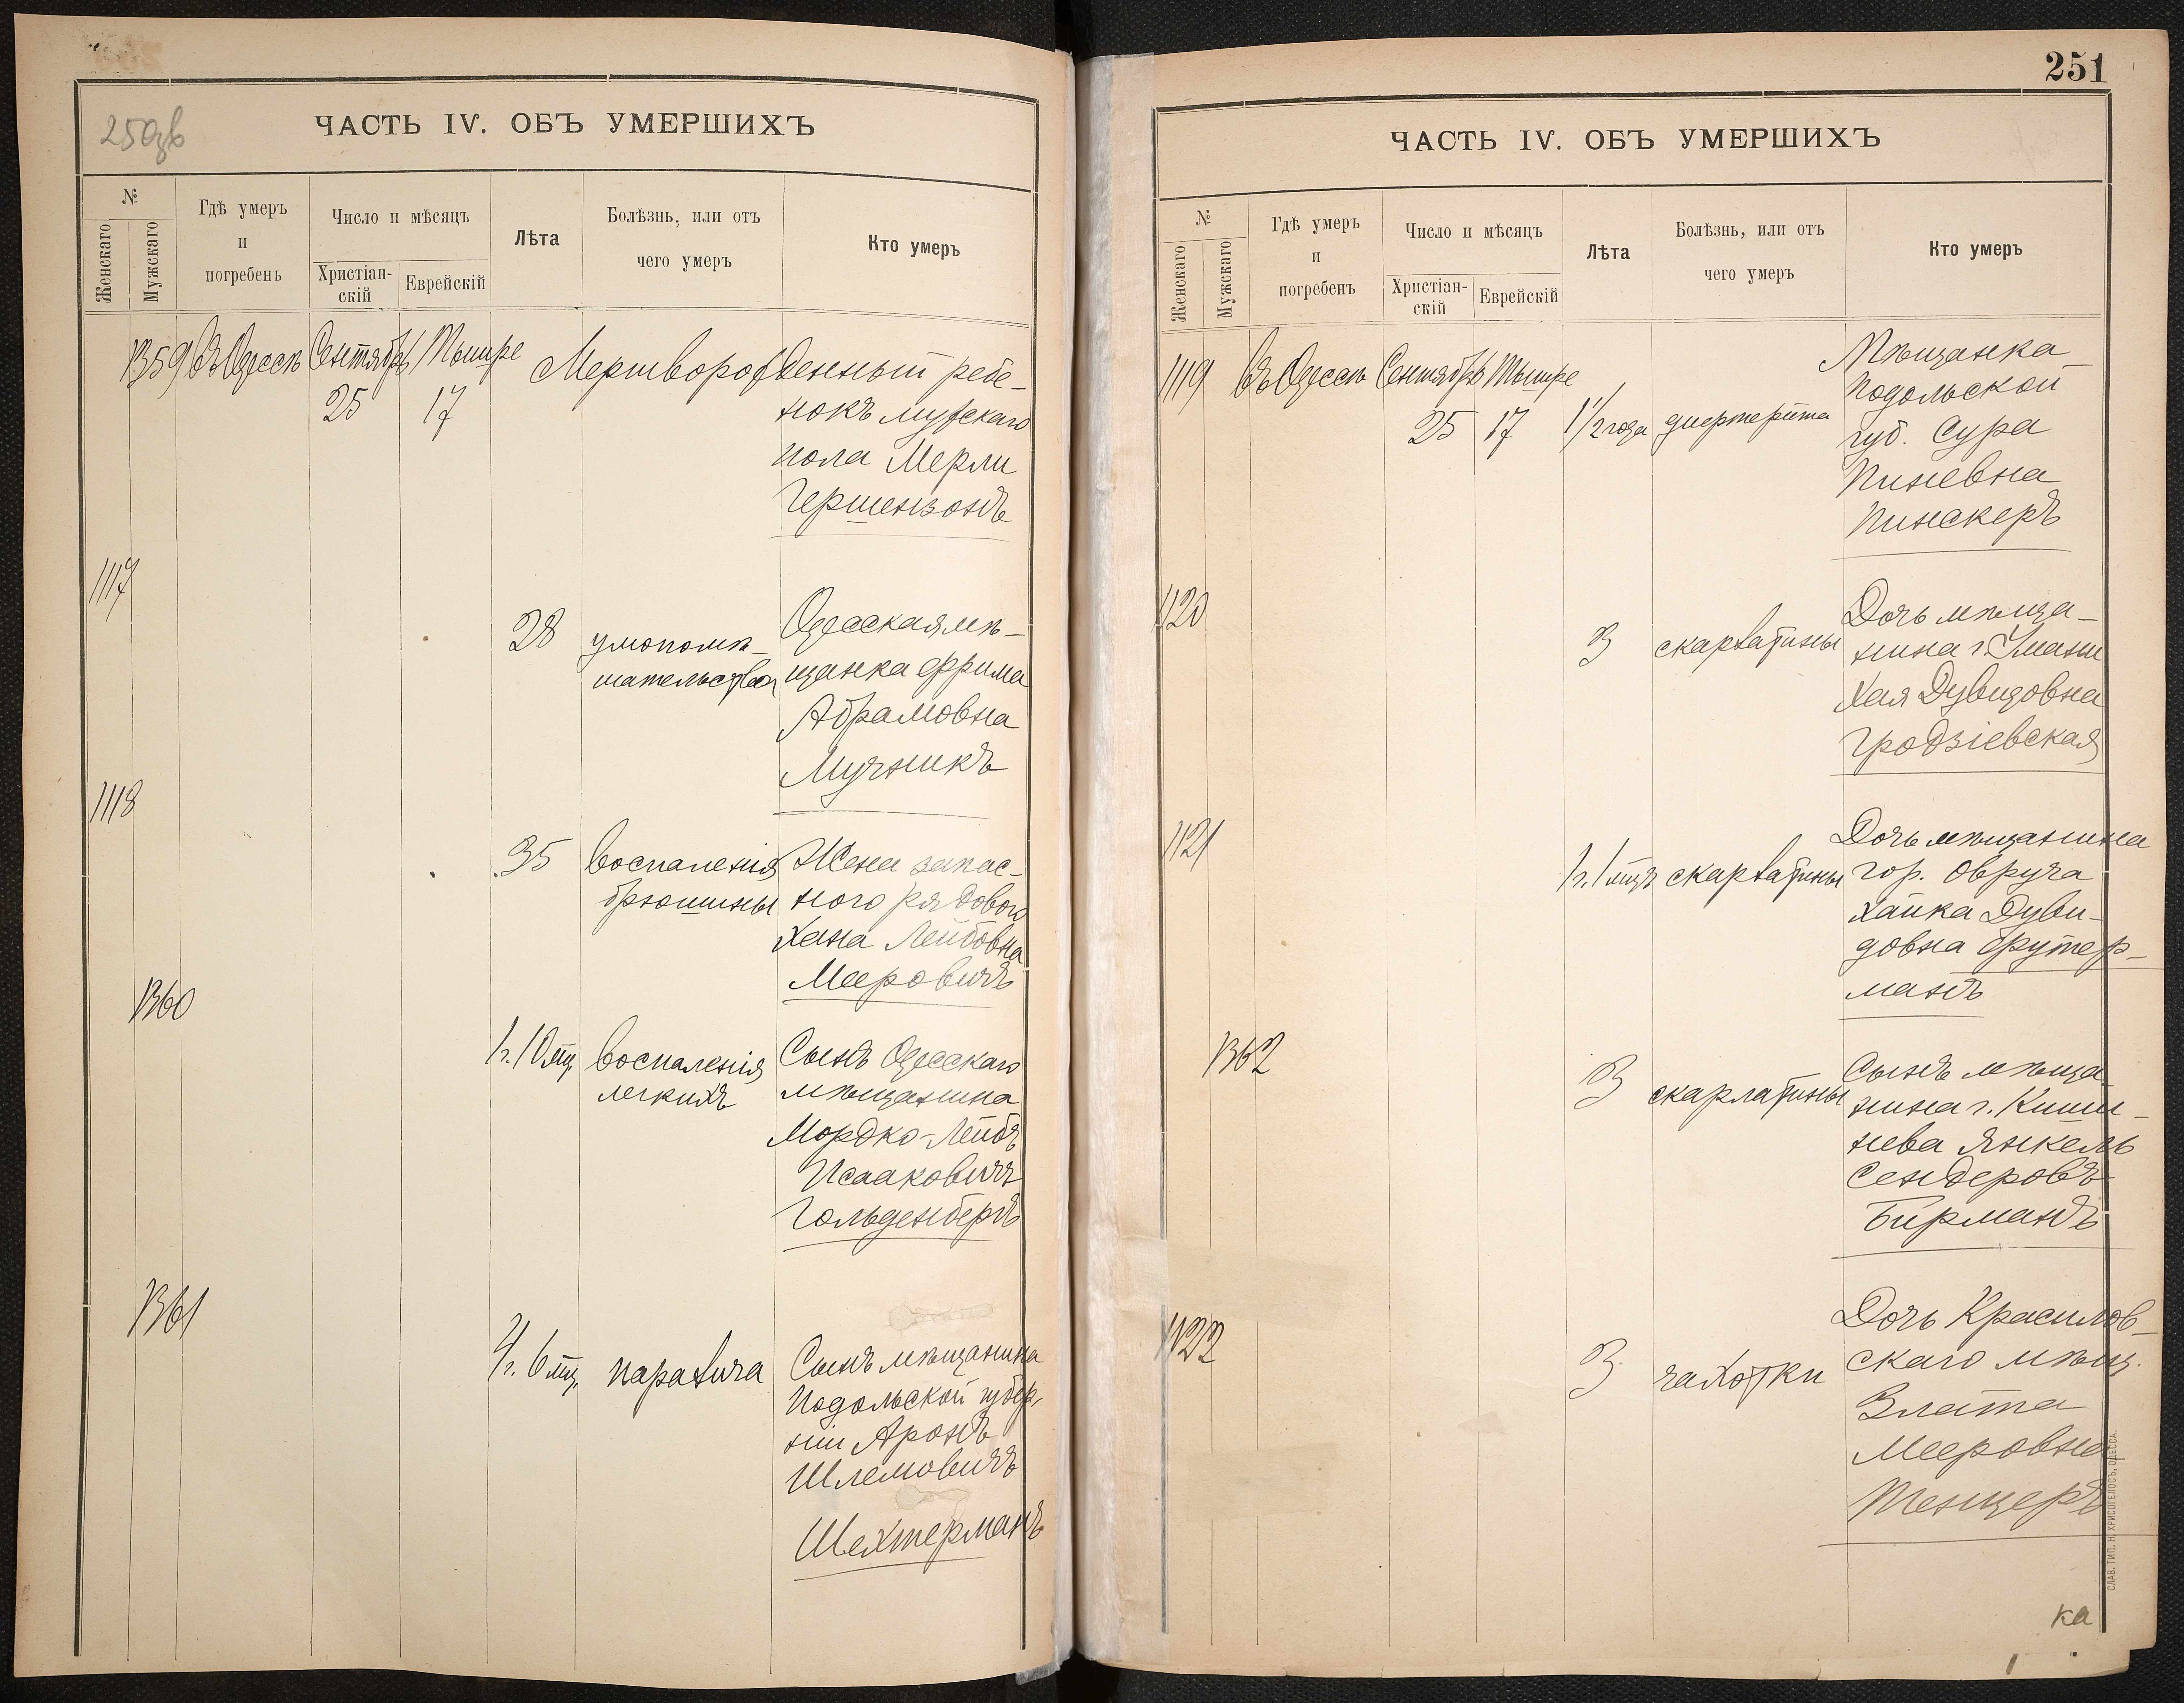 250об
ЧАСТЬ IV. ОБЪ УМЕРШИХЪ
№
Женскаго
Мужскаго
Гдѣ умеръ
и
погребенъ
Число и мѣсяцъ
Христіан-
скій
Еврейскій
Лѣта
Болѣзнь, или отъ
чего умеръ
Кто умеръ
1359 въ Одессѣ Сентябрь Тышре Мертворожденный ребе-
25 17 нокъ мужскаго
пола Мерли
Гершензонъ
1117
28 умопомѣ-
шательства
Одесская мѣ-
щанка Фрима
Абрамовна
Мучникъ
1118
35 воспаленія
брюшины
Жена запас-
ного рядового
Хана Лейбовна
Мееровичъ
1360
1 г. 10 мц. воспаленія
легкихъ
Сынъ Одесскаго
мѣщанина
Мордко-Лейбъ
Исааковичъ
Гольденбергъ
1361
4 г. 6 мц. паралича
Сынъ мѣщанина
Подольской губер-
ніи Аронъ
Шлемовичъ
Шехтерманъ
251
ЧАСТЬ IV. ОБЪ УМЕРШИХЪ
№
Женскаго
Мужскаго
Гдѣ умеръ
и
погребенъ
Число и мѣсяцъ
Христіан-
скій
Еврейскій
Лѣта
Болѣзнь, или отъ
чего умеръ
Кто умеръ
1119 въ Одессѣ Сентябрь Тышре
25 17 1 1/2 года дифтерита
Мѣщанка
Подольской
губ. Сура
Пиневна
Пинскеръ
1120
3 скарлатины
Дочь мѣща-
нина г. Умани
Хая Дувидовна
Гродзіевская
1121
1 г. 1 мцъ скарлатины
Дочь мѣщанина
гор. Овруча
Хайка Дуви-
довна Брутер-
манъ
1362
3 скарлатины
Сынъ мѣща-
нина г. Киши-
нева Янкель
Сендеровъ
Бирманъ
1122
3 чахотки
Дочь Красилов-
скаго мѣщ.
Злата
Мееровна
Тенцеръ
СЛАВ. ТИП. Н. ХРИСОГЕЛОСЪ, ОДЕССА.
ка